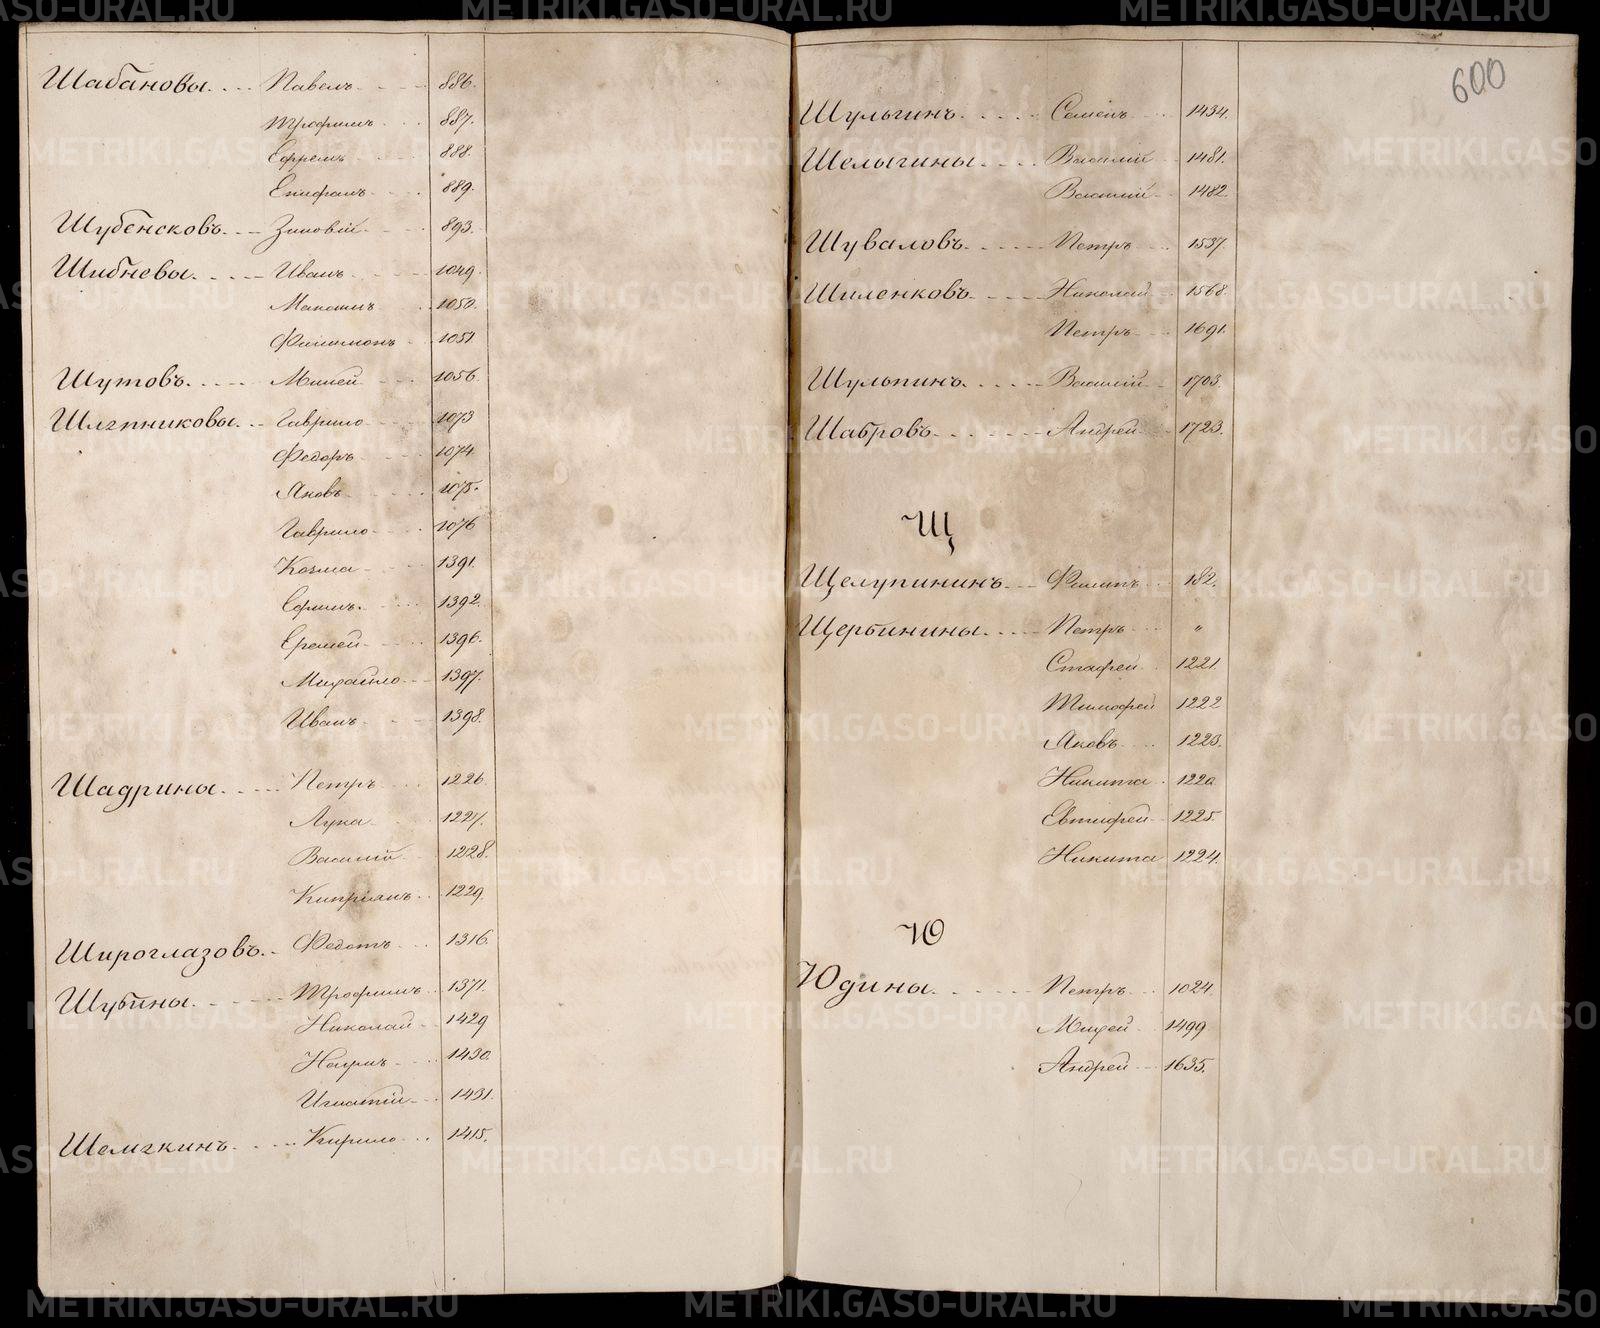 Шабановы. Павелъ 886.
Трофимъ 887.
Ефремъ 888.
Епифанъ 889.
Шубенсковъ. Зиновій 893.
Шибневы. Иванъ 1049.
Максимъ 1050.
Филимонъ 1051.
Шутовъ. Миней 1056.
Шляпниковы. Гаврило 1073
Федоръ 1074.
Яковъ 1075.
Гаврило 1076
Козма 1391.
Ефимъ. 1392.
Еремей 1396.
Михайло 1397.
Иванъ 1398.
Шадрины. Петръ 1226.
Лука 1227.
Василій 1228.
Кипріянъ 1229.
Широглазовъ. Федотъ 1316.
Шубины. Трофимъ 1371.
Николай 1429
Наумъ 1430.
Игнатій 1431.
Шемякинъ. Кирило 1415.
600
Шульгинъ. Семенъ 1434.
Шелыгины. Василій 1481.
Василій 1482.
Шуваловъ. Петръ 1537.
Шиленковъ. Николай 1568.
Петръ 1691.
Шульпинъ. Василій 1703.
Шабровъ. Андрей 1723.
Щ
Щелупининъ. Филипъ 182.
Щербинины. Петръ "
Стафей 1221.
Тимофей 1222
Яковъ 1223.
Никита 1220
Евтифей 1225.
Никита 1224.
Ю
Юдины. Петръ 1024.
Михей 1499
Андрей 1635.
METRIKI.GASO-URAL.RU